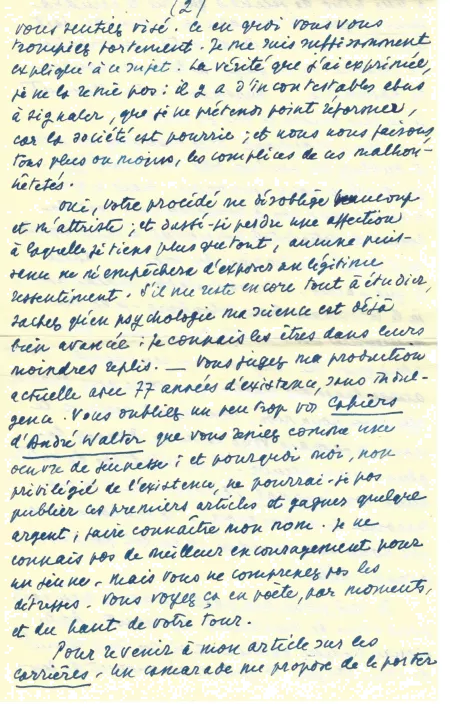 (2)
vous sentiez visé. Ce en quoi vous vous
trompiez fortement. Je me suis suffisamment
expliqué à ce sujet. La vérité que j'ai exprimée,
je ne la renie pas : il y a d'incontestables abus
à signaler, que je ne prétends point réformer,
car la société est pourrie ; et nous nous faisons,
tous plus ou moins, les complices de ces malhon-
nêtetés.
Oui, votre procédé me désoblige beaucoup
et m'attriste ; et dussé-je perdre une affection
à laquelle je tiens plus que tout, aucune puis-
sance ne m'empêchera d'exposer un légitime
ressentiment. S'il me reste encore tout à étudier,
sachez qu'en psychologie ma science est déjà
bien avancée : je connais les êtres dans leurs
moindres replis. — Vous jugez ma production
actuelle avec 77 années d'existence, sans indul-
gence. Vous oubliez un peu trop vos Cahiers
d'André Walter que vous reniez comme une
œuvre de jeunesse ; et pourquoi moi, non
privilégié de l'existence, ne pourrai-je pas
publier ces premiers articles et gagner quelque
argent ; faire connaître mon nom. Je ne
connais pas de meilleur encouragement pour
un jeune. Mais vous ne comprenez pas les
détresses. Vous voyez ça en poète, par moments,
et du haut de votre tour.
Pour revenir à mon article sur les
carrières. Un camarade me propose de le porter